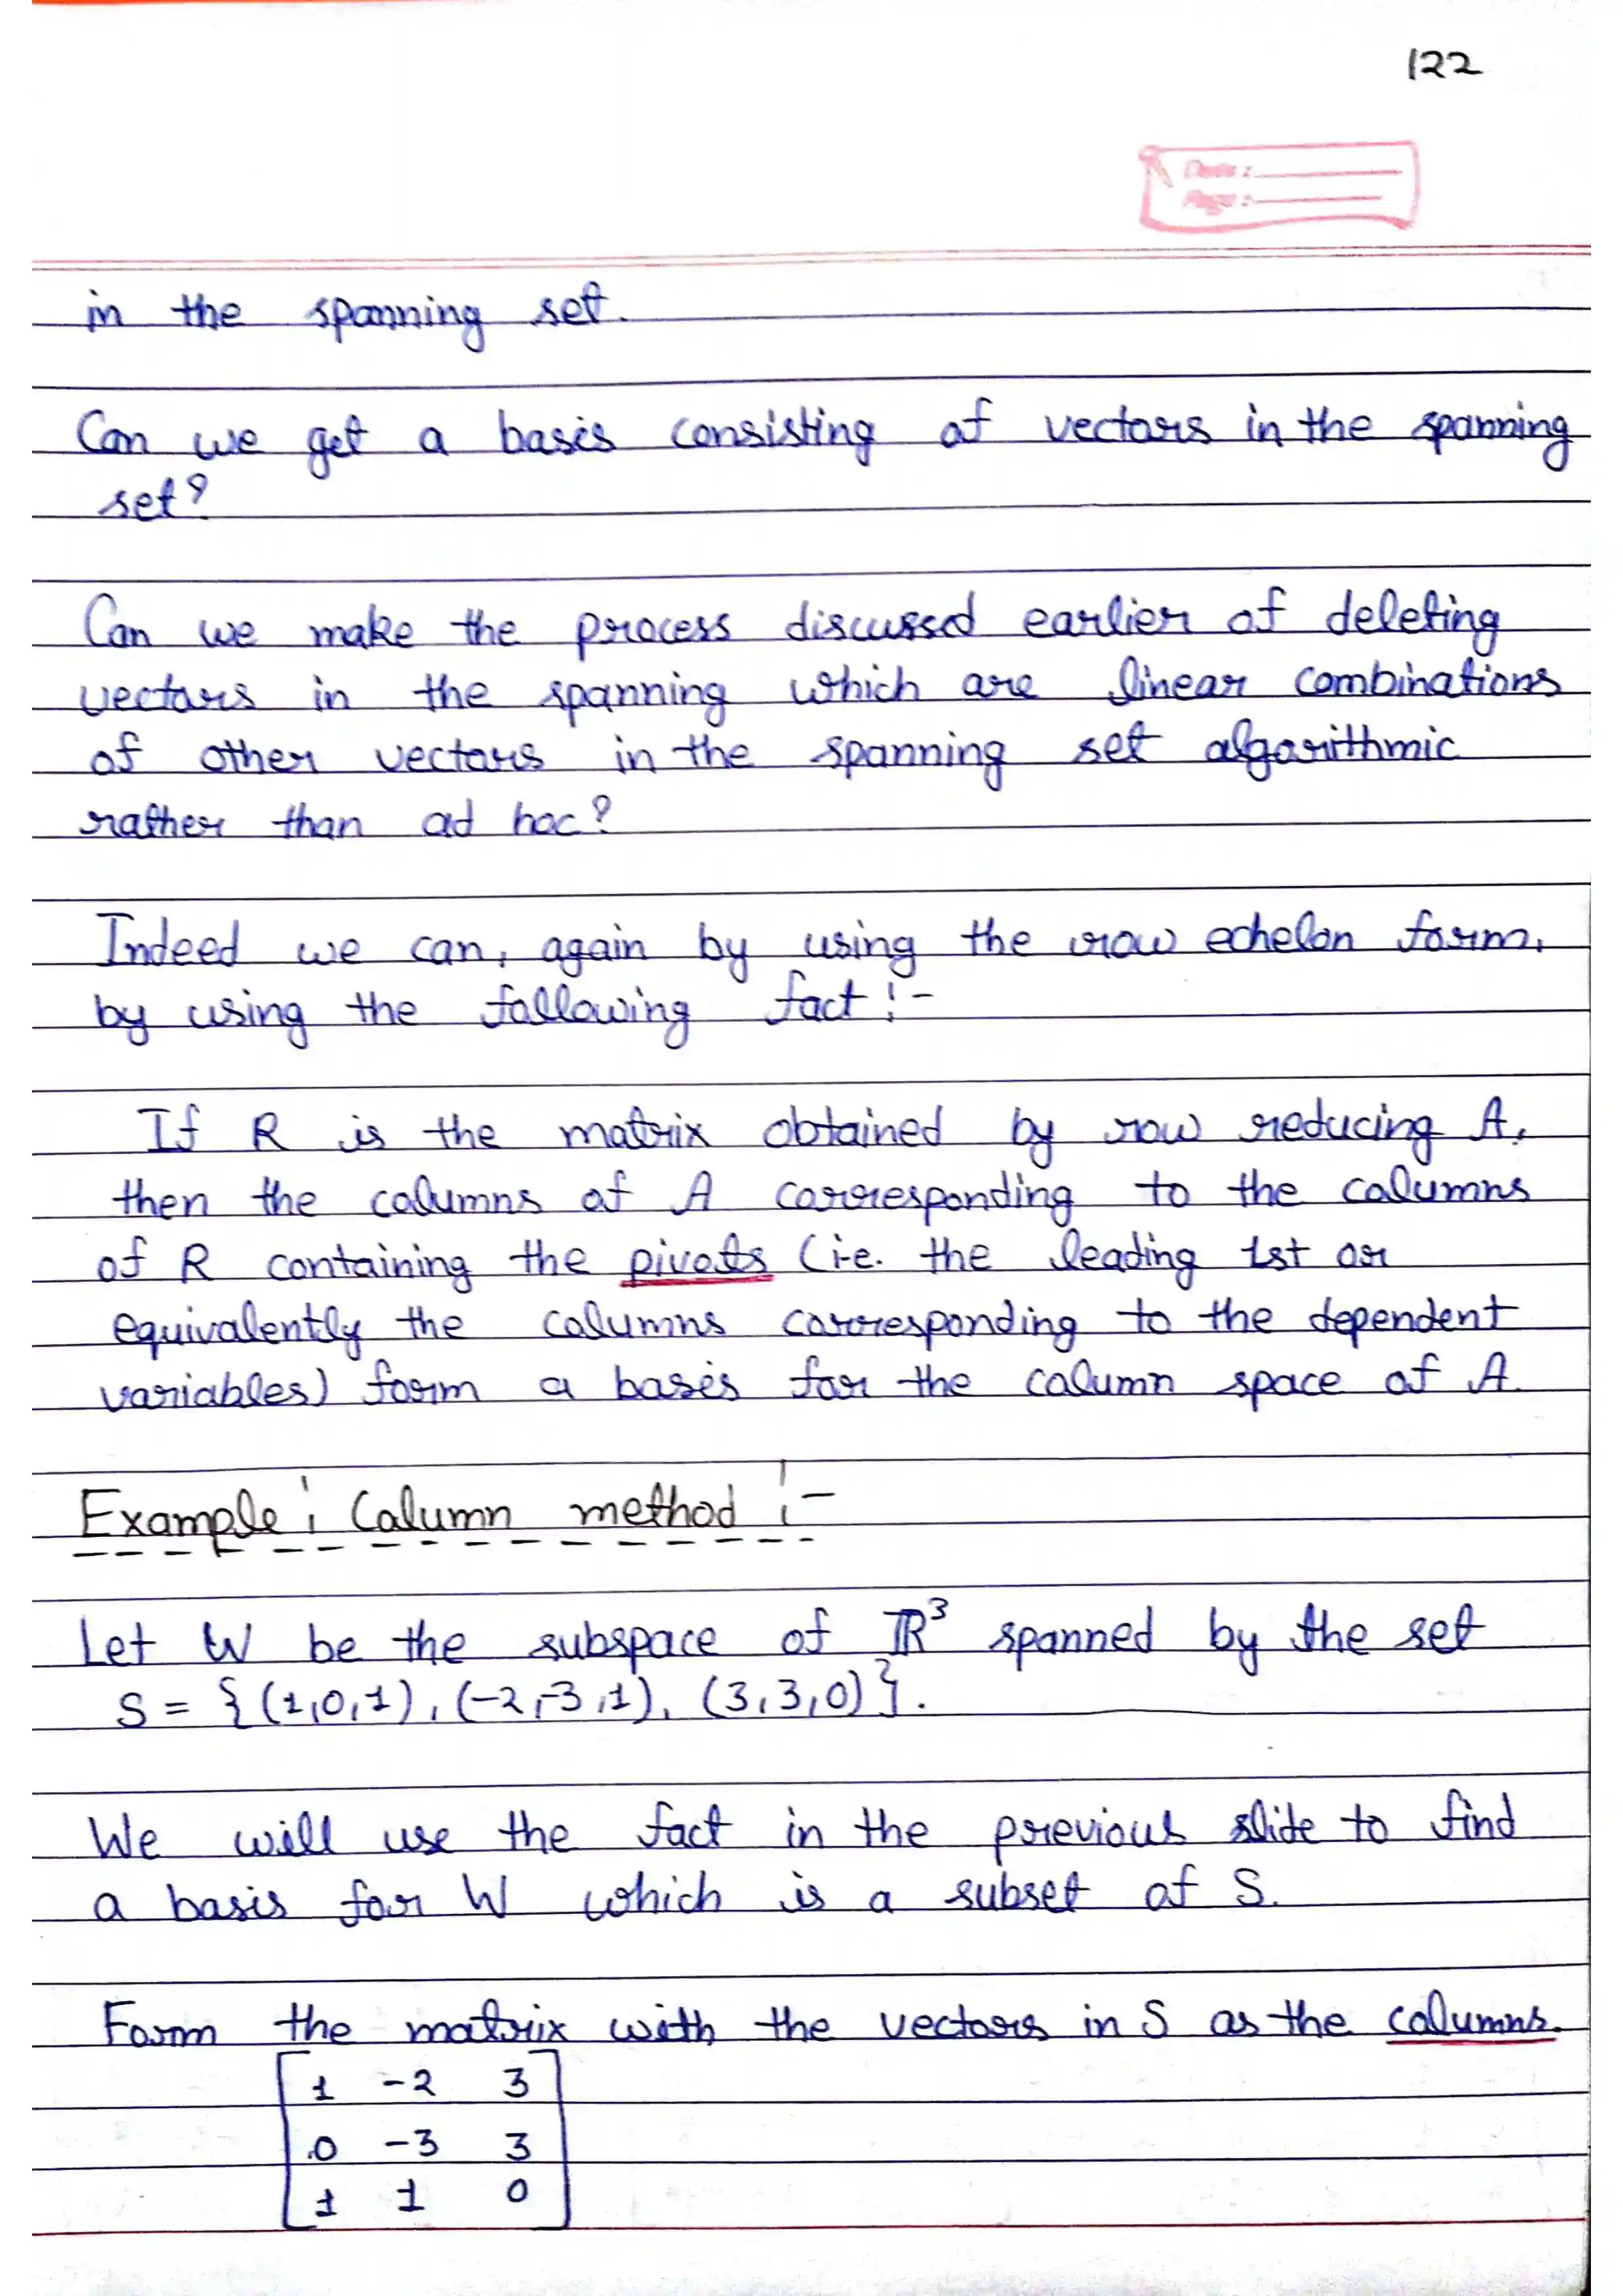 122
Date :
Page :
in the spanning set.
Can we get a basis consisting of vectors in the spanning
set?
Can we make the process discussed earlier of deleting
vectors in the spanning which are linear combinations
of other vectors in the spanning set algorithmic
rather than ad hoc?
Indeed we can, again by using the row echelon form,
by using the following fact :-
If R is the matrix obtained by row reducing A,
then the columns of A corresponding to the columns
of R containing the pivots (i.e. the leading 1st or
equivalently the columns corresponding to the dependent
variables) form a basis for the column space of A.
Example : Column method :-
Let W be the subspace of ℝ³ spanned by the set
S = {(1,0,1), (-2,-3,1), (3,3,0)}.
We will use the fact in the previous slide to find
a basis for W which is a subset of S.
Form the matrix with the vectors in S as the columns.
1 -2 3
0 -3 3
1 1 0